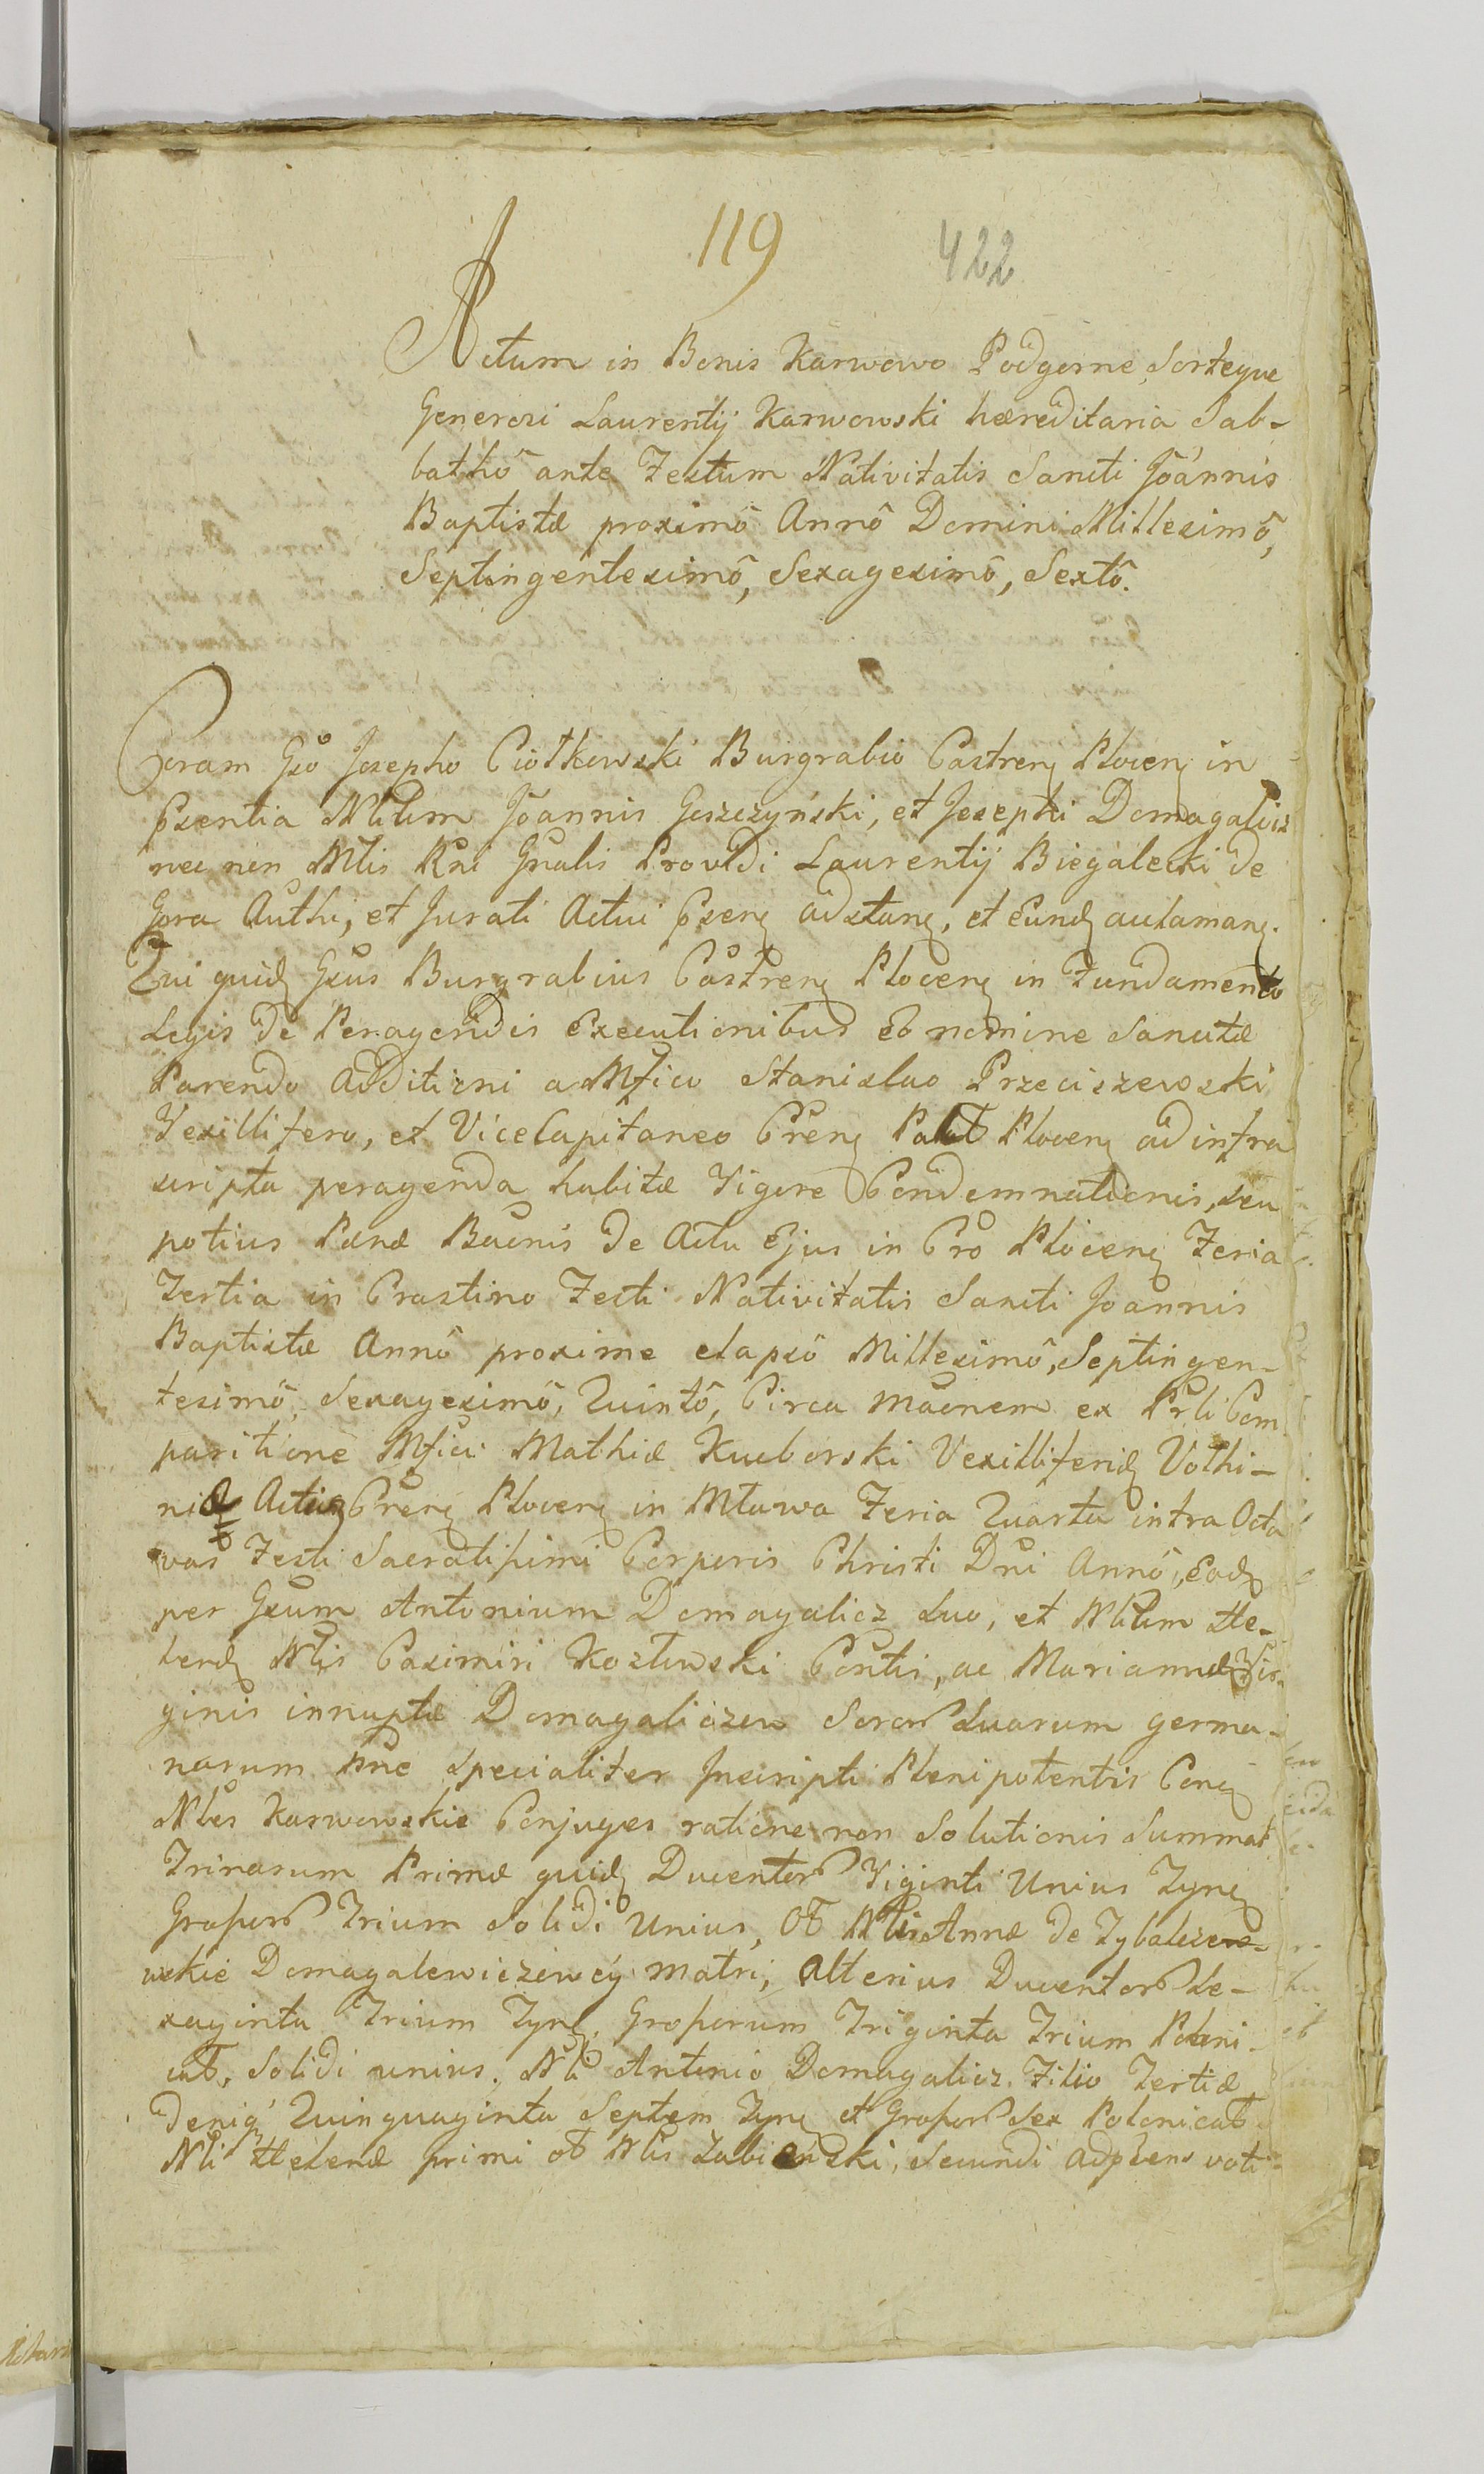 119
422
Actum in Bonis Karwowo Podgorne Sorteque
Generosi Laurentij Karwowski hæreditaria Sab-
bathô ante Festum Nativitatis Sancti Joannis
Baptistæ proximô Annô Domini Millesimô,
Septingentesimô, Sexagesimô, Sextô.
Coram Gso Josepho Ciołkowski Burgrabio Castren Plocen in
Psentia Nblium Joannis Goszczyński, et Josephi Domagalicz
nec non Mtlis Rni Gnalis Providi Laurentij Biegalecki de
Gora Authi, et Jurati Actui Psen adstan, et Eund autaman.
Qui quid Gsus Burgrabius Castren Plocen in Fundamento
Legis de Peragendis Executionibus eo nomine Sancitæ
Parendo additioni a Mfico Stanislao Przeciszewski
Vexillifero, et ViceCapitaneo Cren Palat Plocen ad infra
scripta peragenda habitæ Vigore Condemnationis, seu
potius Pænæ Baonis de Actu Ejus in Cro Plocen Feria
Tertia in Crastino Festi Nativitatis Sancti Joannis
Baptistæ Annô proxime elapsô Millesimô, Septingen-
tesimô, Sexagesimô, Quintô, Circa maonem ex Prli Com
paritione Mfici Mathiæ Kuuborski Vexilliferid Volhi-
niæ Actis Cren Plocen in Mława Feria Quarta intra Octa
vas Festi Sacratissimi Corporis Christi Dni Annô, Eod
per Gsum Antonium Domagalicz Suo, et Nblium He-
lend Nblis Casimiri Kozłowski Contis, ac Mariannæ Vir-
ginis innuptæ Domagaliczow Soror Suarum germa-
narum hne specialiter Inscripti Plenipotentis Con
Nbles Karwowskie Conjuges ratione non Solutionis Summar
Trinarum Primæ quid Ducentor Viginti Unius Tyn
Grossor Trium Solidi Unius, Ob Nblis Annæ de
wskie Domagalewiczewey matri, Alterius Ducentor Se-
xaginta Trium Tynf. Grossorum Triginta Trium Poloni-
cal, Solidi unius. Nbli Antonio Domagalicz Filio Tertiæ
deniq Quinquaginta Septem Tyn et Grossor Sex Polonical
Nbli Helenæ primi ob Nblis Zabieński, Secundi adpsens voti